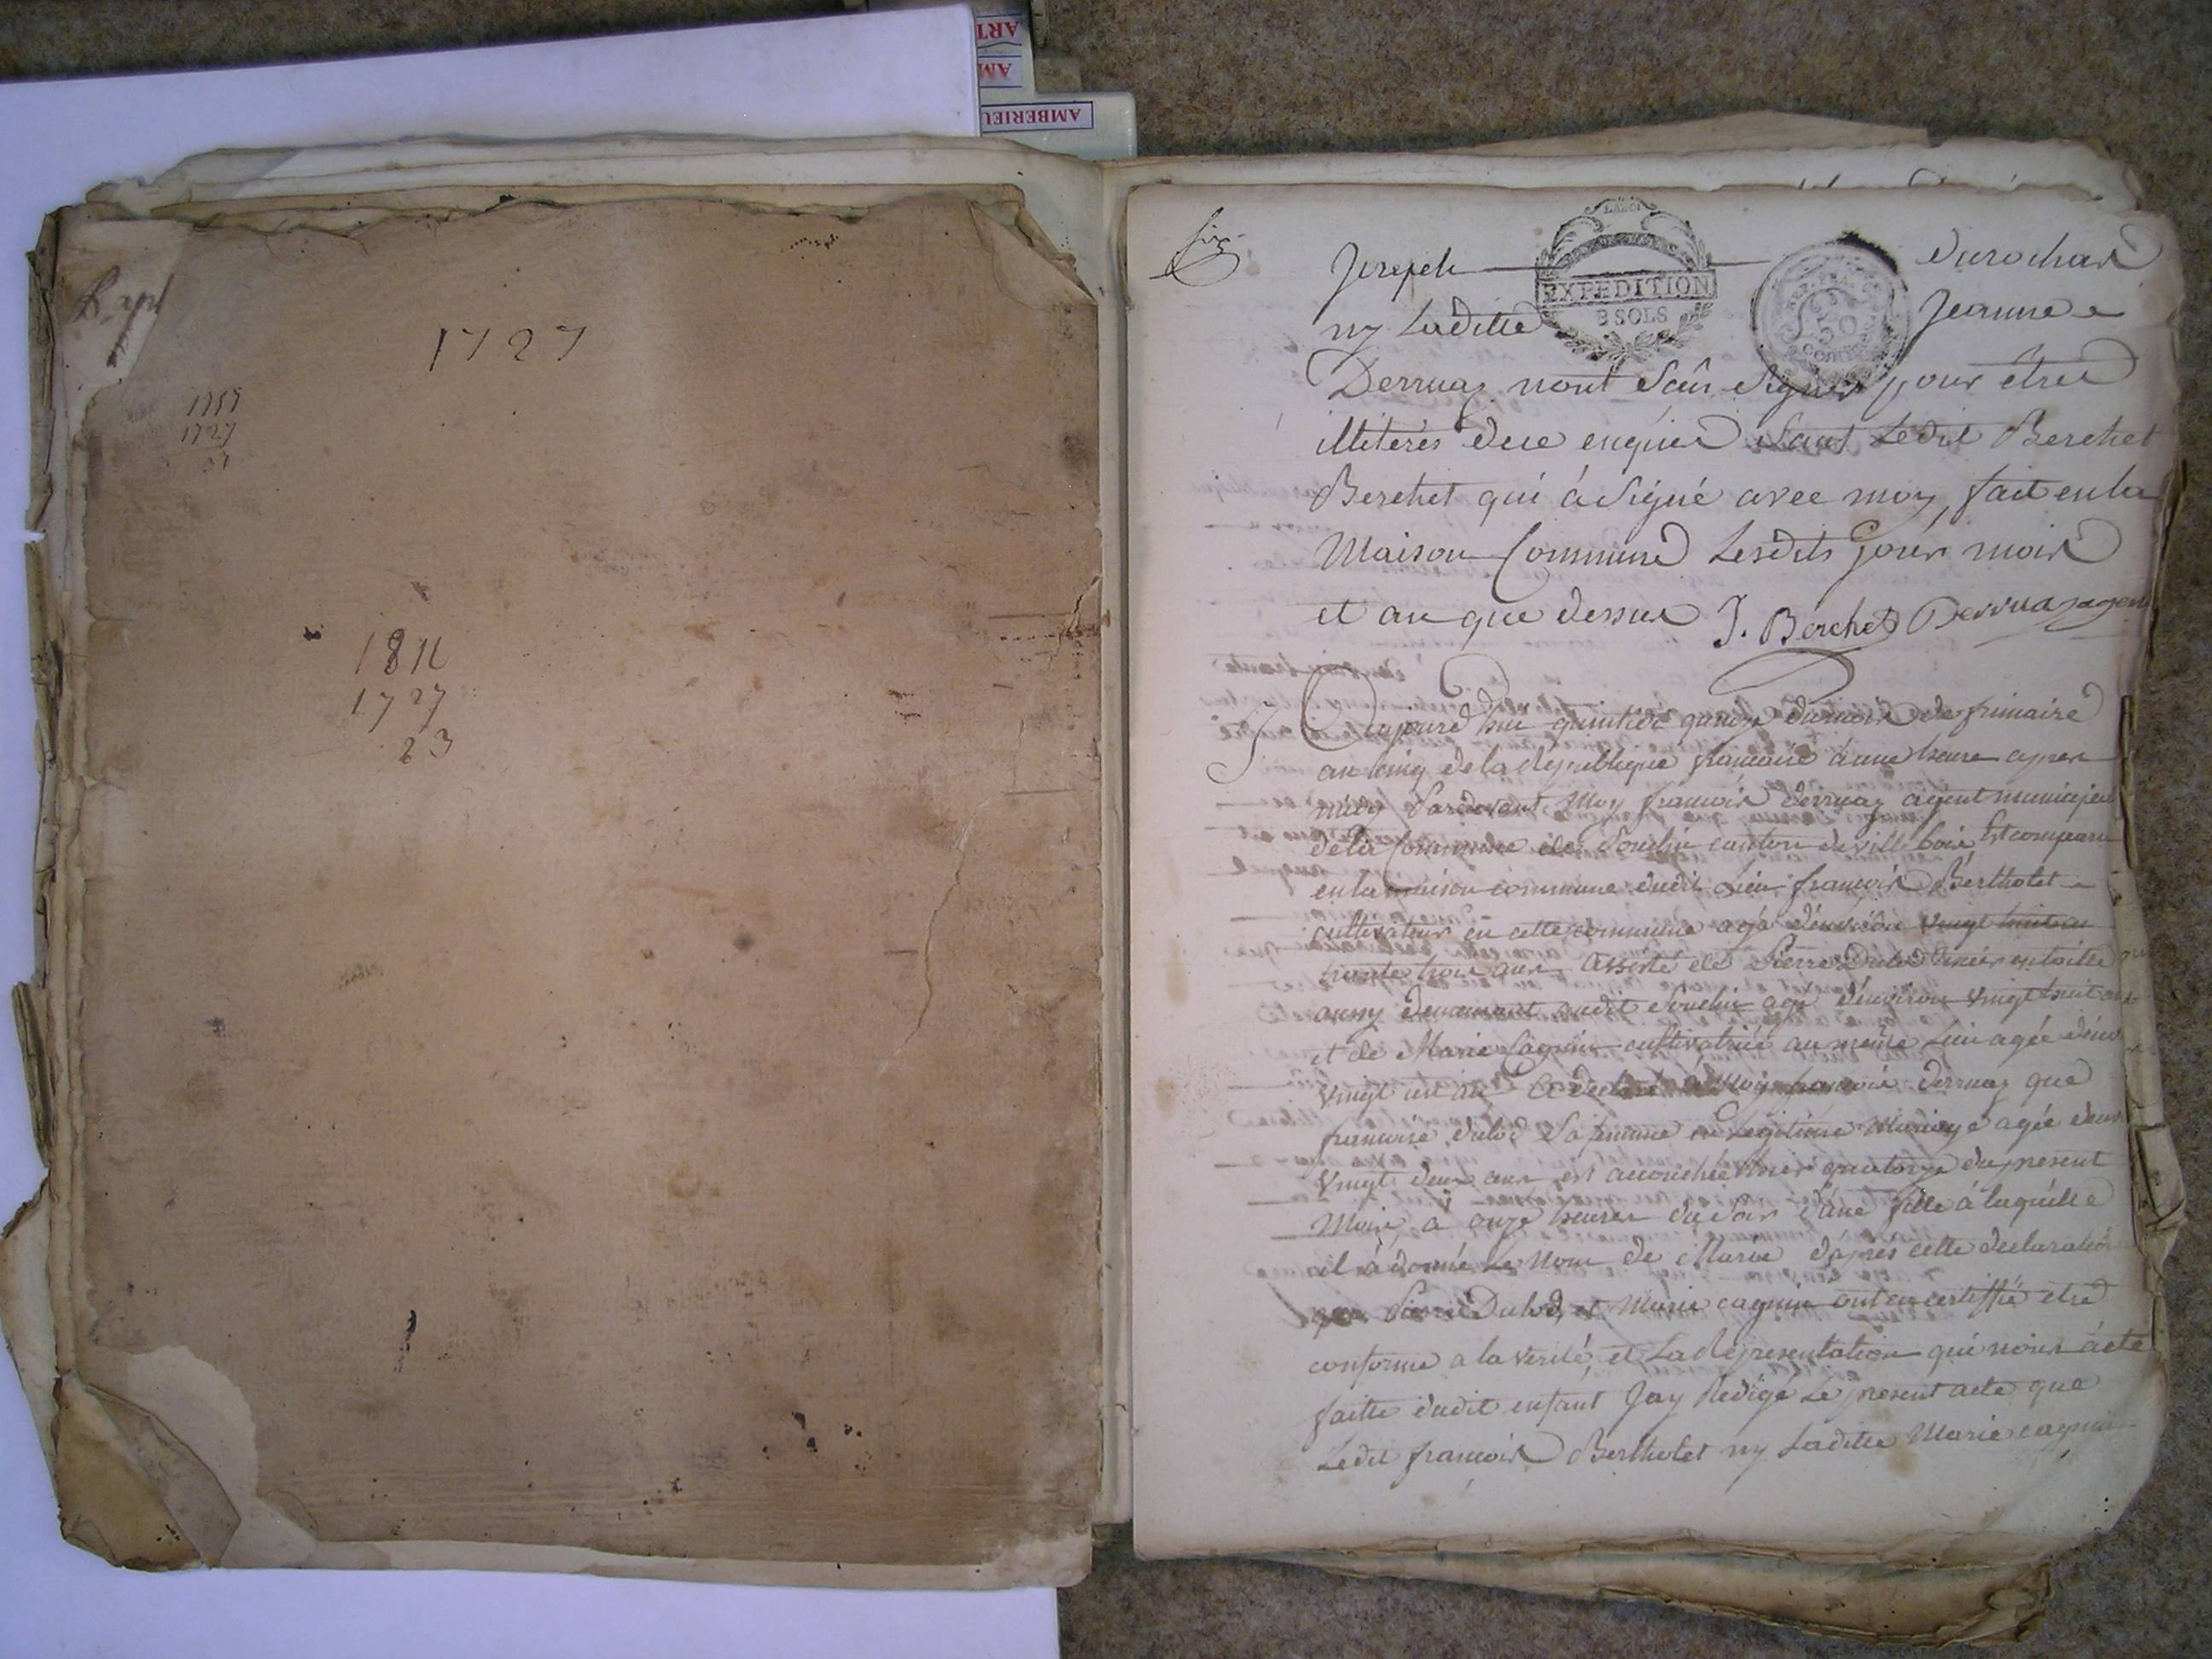 ART
AM
AMBERIEU
1727
1757
1727
1811
1727
83
six
Joseph durochard
LA LOI
EXPEDITION
3 SOLS
ny Laditte Jeanne
Derruaz nont Sû Signer pour être
illiterés de ce enquis Sauf Ledit Berchet
Berchet qui à Signé avec moy, fait en la
Maison Commune Lesdits jour mois
et an que dessus J. Berchet Derruaz agent
aujourd'hui quintidi quinze du mois de frimaire
an cinq de la Republique francaise à une heure apres
midy Pardevant Moy francois derruaz agent municipal
de la Commune de Souclin canton de villebois Est comparu
en la maison commune dudit Lieu francois Bertholet
cultivateur en cette commune agé d'environ vingt huit an
trente trois ans Assisté de Pierre Dulod en toille
aussy demeurant audit Souclin agé d'environ vingt huit ans
et de Marie Cagnin cultivatrice au même Lieu agée d'env
vingt un an a declaré à Moy francois derruaz que
francoise dulod Sa femme en Legitime Mariage agée d'env
vingt deux ans est accouchée hier quatorze du present
Mois, a onze heures du Soir d'une fille à laquelle
il à donné Le Nom de Marie d'après cette declaration
que Pierre Dulod, et Marie cagnin ont certiffié etre
conforme a la verité, et La Representation qui nous à été
faitte dudit enfant Jay Redigé Le present acte que
Ledit francois Bertholet ny Laditte Marie cagnin